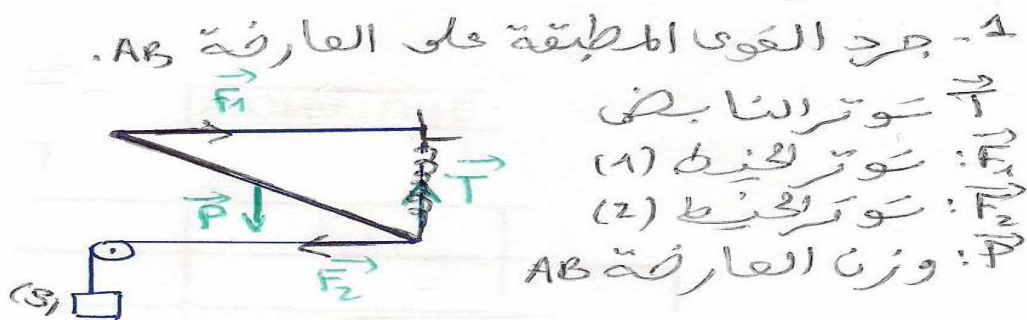 1- جرد القوى المطبقة على العارضة AB.
T توتر النابض
F1: توتر الخيط (1)
F2: توتر الخيط (2)
P: وزن العارضة AB
F1
P
T
F2
(S)